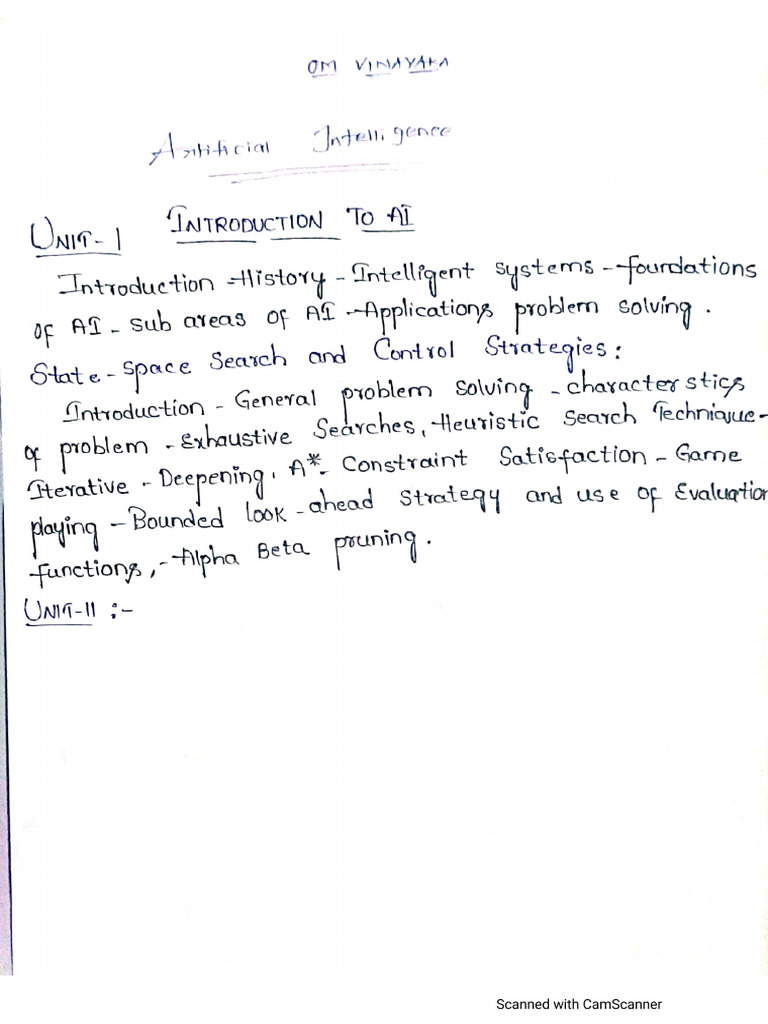 OM VINAYAKA
Artificial Intelligence
UNIT-I INTRODUCTION TO AI
Introduction - History - Intelligent systems - foundations
of AI - sub areas of AI - Applications problem solving.
State - space Search and Control Strategies:
Introduction - General problem solving - characterstics
of problem - Exhaustive Searches, Heuristic Search Technique -
Iterative - Deepening, A* - Constraint Satisfaction - Game
playing - Bounded look - ahead strategy and use of Evaluation
functions, - Alpha Beta pruning.
UNIT-II :-
Scanned with CamScanner